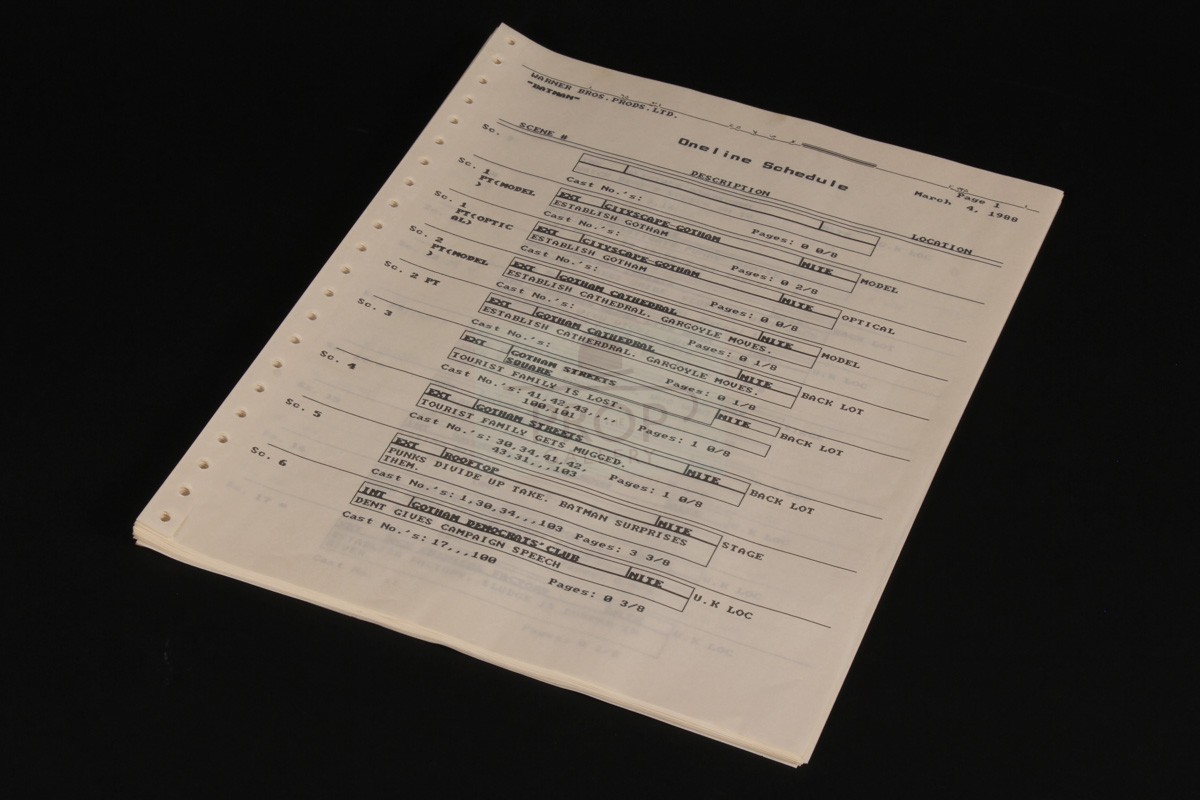 WARNER BROS.PRODS.LTD.
"BATMAN"
Oneline Schedule
Page 1
March 4, 1988
SCENE #
DESCRIPTION
LOCATION
Sc.
Cast No.'s:
Pages: 0 0/8
Sc. 1
PT(MODEL
)
EXT
CITYSCAPE GOTHAM
NITE
MODEL
ESTABLISH GOTHAM
Cast No.'s:
Pages: 0 2/8
Sc. 1
PT(OPTIC
AL)
EXT
CITYSCAPE GOTHAM
NITE
OPTICAL
ESTABLISH GOTHAM
Cast No.'s:
Pages: 0 0/8
Sc. 2
PT(MODEL
)
EXT
GOTHAM CATHEDRAL
NITE
MODEL
ESTABLISH CATHEDRAL. GARGOYLE MOVES.
Cast No.'s:
Pages: 0 1/8
Sc. 2 PT
EXT
GOTHAM CATHEDRAL
NITE
BACK LOT
ESTABLISH CATHERDRAL. GARGOYLE MOVES.
Cast No.'s:
Pages: 0 1/8
Sc. 3
EXT
GOTHAM STREETS
SQUARE
NITE
BACK LOT
TOURIST FAMILY IS LOST
Cast No.'s: 41,42,43,,,,
100,101
Pages: 1 0/8
Sc. 4
EXT
GOTHAM STREETS
NITE
BACK LOT
TOURIST FAMILY GETS MUGGED.
Cast No.'s: 30,34,41,42,
43,31,,,103
Pages: 1 0/8
Sc. 5
EXT
ROOFTOP
NITE
STAGE
PUNKS DIVIDE UP TAKE. BATMAN SURPRISES
THEM.
Cast No.'s: 1,30,34,,,103
Pages: 3 3/8
Sc. 6
INT
GOTHAM DEMOCRATS' CLUB
NITE
U.K LOC
DENT GIVES CAMPAIGN SPEECH
Cast No.'s: 17,,,100
Pages: 0 3/8